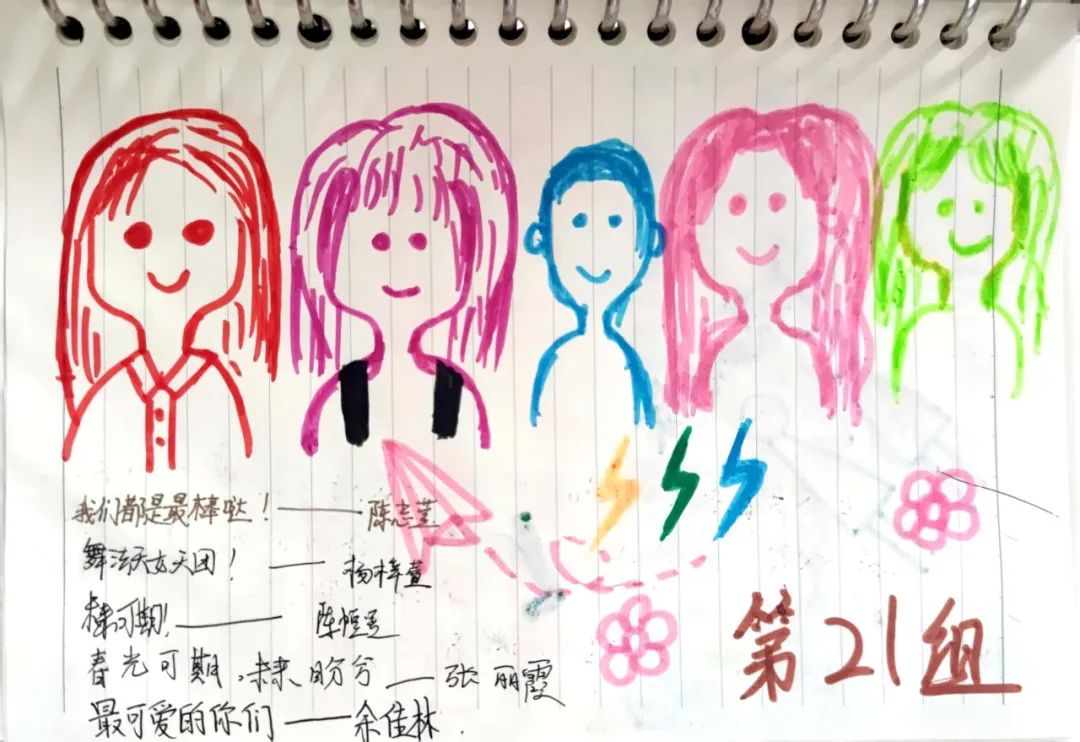 我们都是最棒哒！——陈志莹
舞法天女天团！——杨梓萱
可期！——陈恒
春光可期，未来盼兮——张丽霞
最可爱的你们——余佳林.
第21组